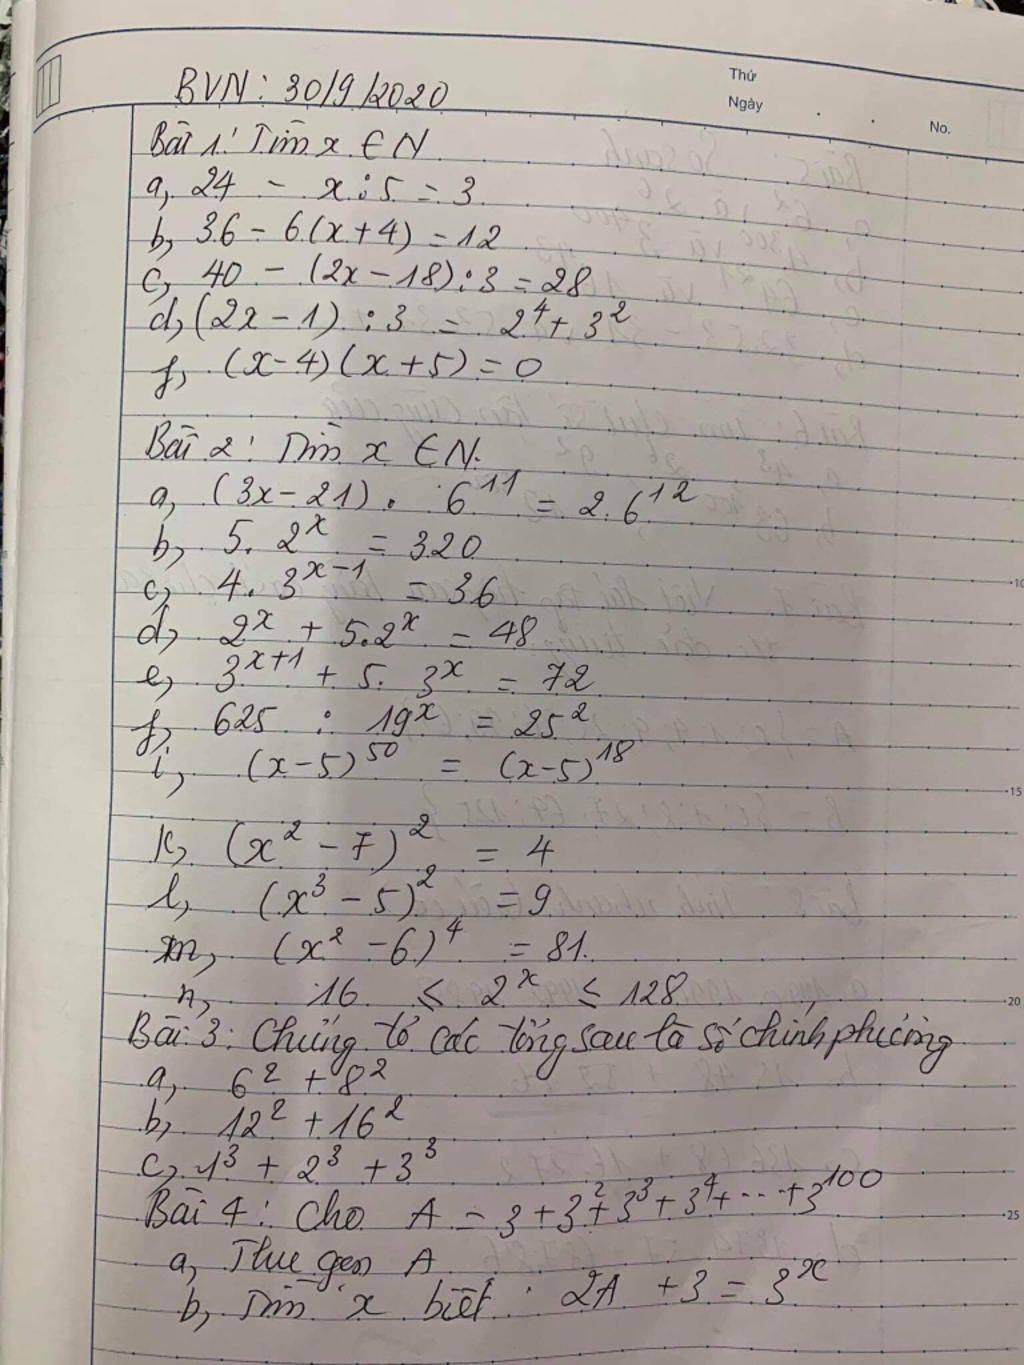 Thứ
Ngày
No.
BVN: 30/9/2020
Bài 1: Tìm x ∈ N
a, 24 - x : 5 = 3
b, 36 - 6.(x+4) = 12
c, 40 - (2x - 18) : 3 = 28
d, (2x - 1) : 3 = 2⁴ + 3²
f, (x-4)(x+5) = 0
Bài 2: Tìm x ∈ N.
a, (3x - 21) . 6¹¹ = 2.6¹²
b, 5. 2ˣ = 320
c, 4. 3ˣ⁻¹ = 36
d, 2ˣ + 5.2ˣ = 48
e, 3ˣ⁺¹ + 5. 3ˣ = 72
f, 625 : 19ˣ = 25²
i, (x-5)⁵⁰ = (x-5)¹⁸
k, (x² - 7)² = 4
l, (x³ - 5)² = 9
m, (x² - 6)⁴ = 81.
n, 16 ≤ 2ˣ ≤ 128
Bài 3: Chứng tỏ các tổng sau là số chính phương
a, 6² + 8²
b, 12² + 16²
c, 1³ + 2³ + 3³
Bài 4: Cho A = 3 + 3² + 3³ + 3⁴ + ... + 3¹⁰⁰
a, Thu gọn A
b, Tìm x biết : 2A + 3 = 3ˣ
10
15
20
25